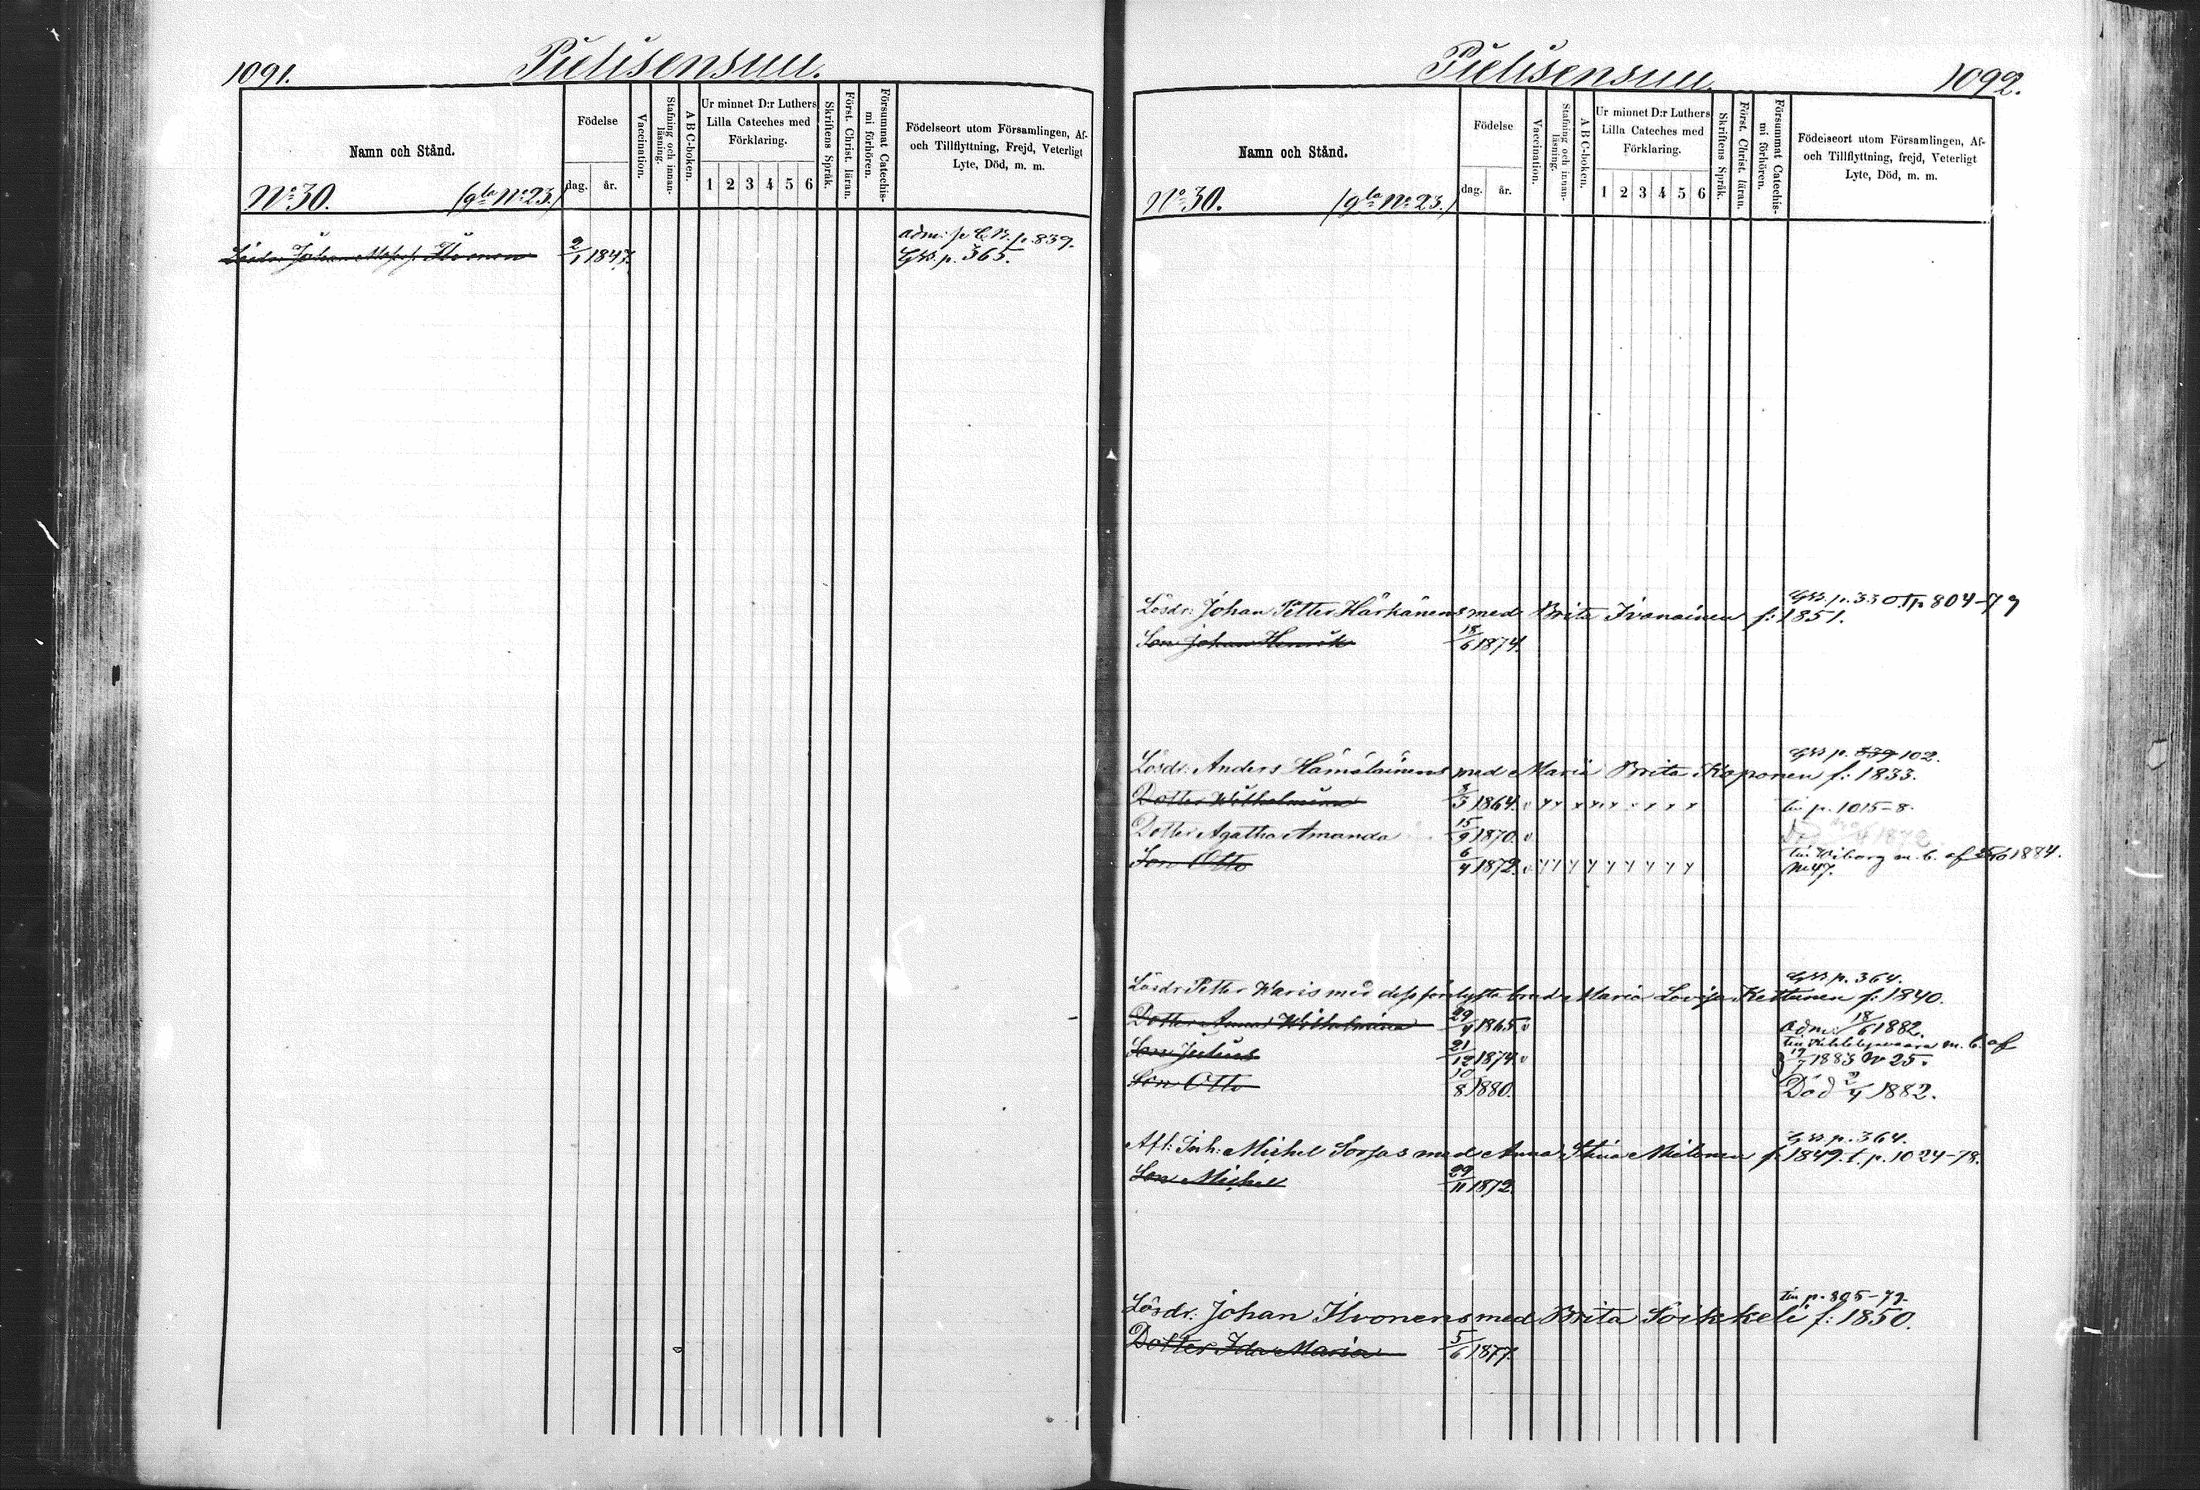 1091.
Pielisensuu.
Namn och Stånd.
Födelse
dag. år.
Vaccination.
Stafning och innan-
läsning.
A B C-boken.
Ur minnet D:r Luthers
Lilla Cateches med
Förklaring.
1 2 3 4 5 6
Skriftens Språk.
Först. Christ. läran.
Försummat Catechis-
mi förhören.
Födelseort utom Församlingen, Af-
och Tillflyttning, Frejd, Veterligt
Lyte, Död, m. m.
No 30. (gla No 23.)
adm: p. 839.
Lösdr: Johan Ilvonen 2/1 1847. p. 365.
Pielisensuu.
1092.
Namn och Stånd.
Födelse
dag. år.
Vaccination.
Stafning och innan-
läsning.
A B C-boken.
Ur minnet D:r Luthers
Lilla Cateches med
Förklaring.
1 2 3 4 5 6
Skriftens Språk.
Först. Christ. läran.
Försummat Catechis-
mi förhören.
Födelseort utom Församlingen, Af-
och Tillflyttning, frejd, Veterligt
Lyte, Död, m. m.
No 30. (gla No 23.)
p. 330. Tp. 804-79
Lösdr: Johan Petter Härkänens med Brita Ivanainen f: 1851.
Son Johan Henrik 18/6 1874.
p. 339 102.
Lösdr: Anders Hämäläinens med Maria Brita Kaponen f: 1833.
Dotter Wilhelmina 8/3 1864. v p. 1015-8.
Dotter Agatha Amanda 15/9 1870. v
Son Otto 6/4 1872. v till Wiborg m. b. af 1884.
No 47.
p. 364.
Lösdr Petter Waris med dess förlofvade Maria Lovisa Kettunen f: 1840.
Dotter Anna Wilhelmina 29/4 1865. v adm: 18/6 1882.
Son Julius 21/12 1874. v m. b. af
19/7 1883 No 25.
Son Otto 10/8 1880. Död 2/4 1882.
p. 364.
Afl: Inh: Michel Sorjas med Anna Stina Miettinen f: 1849. t. p. 1024-78.
Son Michel 29/11 1872.
till p. 805-79.
Lösdr: Johan Ilvonens med Brita Soikkeli f: 1850.
Dotter Ida Maria 5/6 1877.